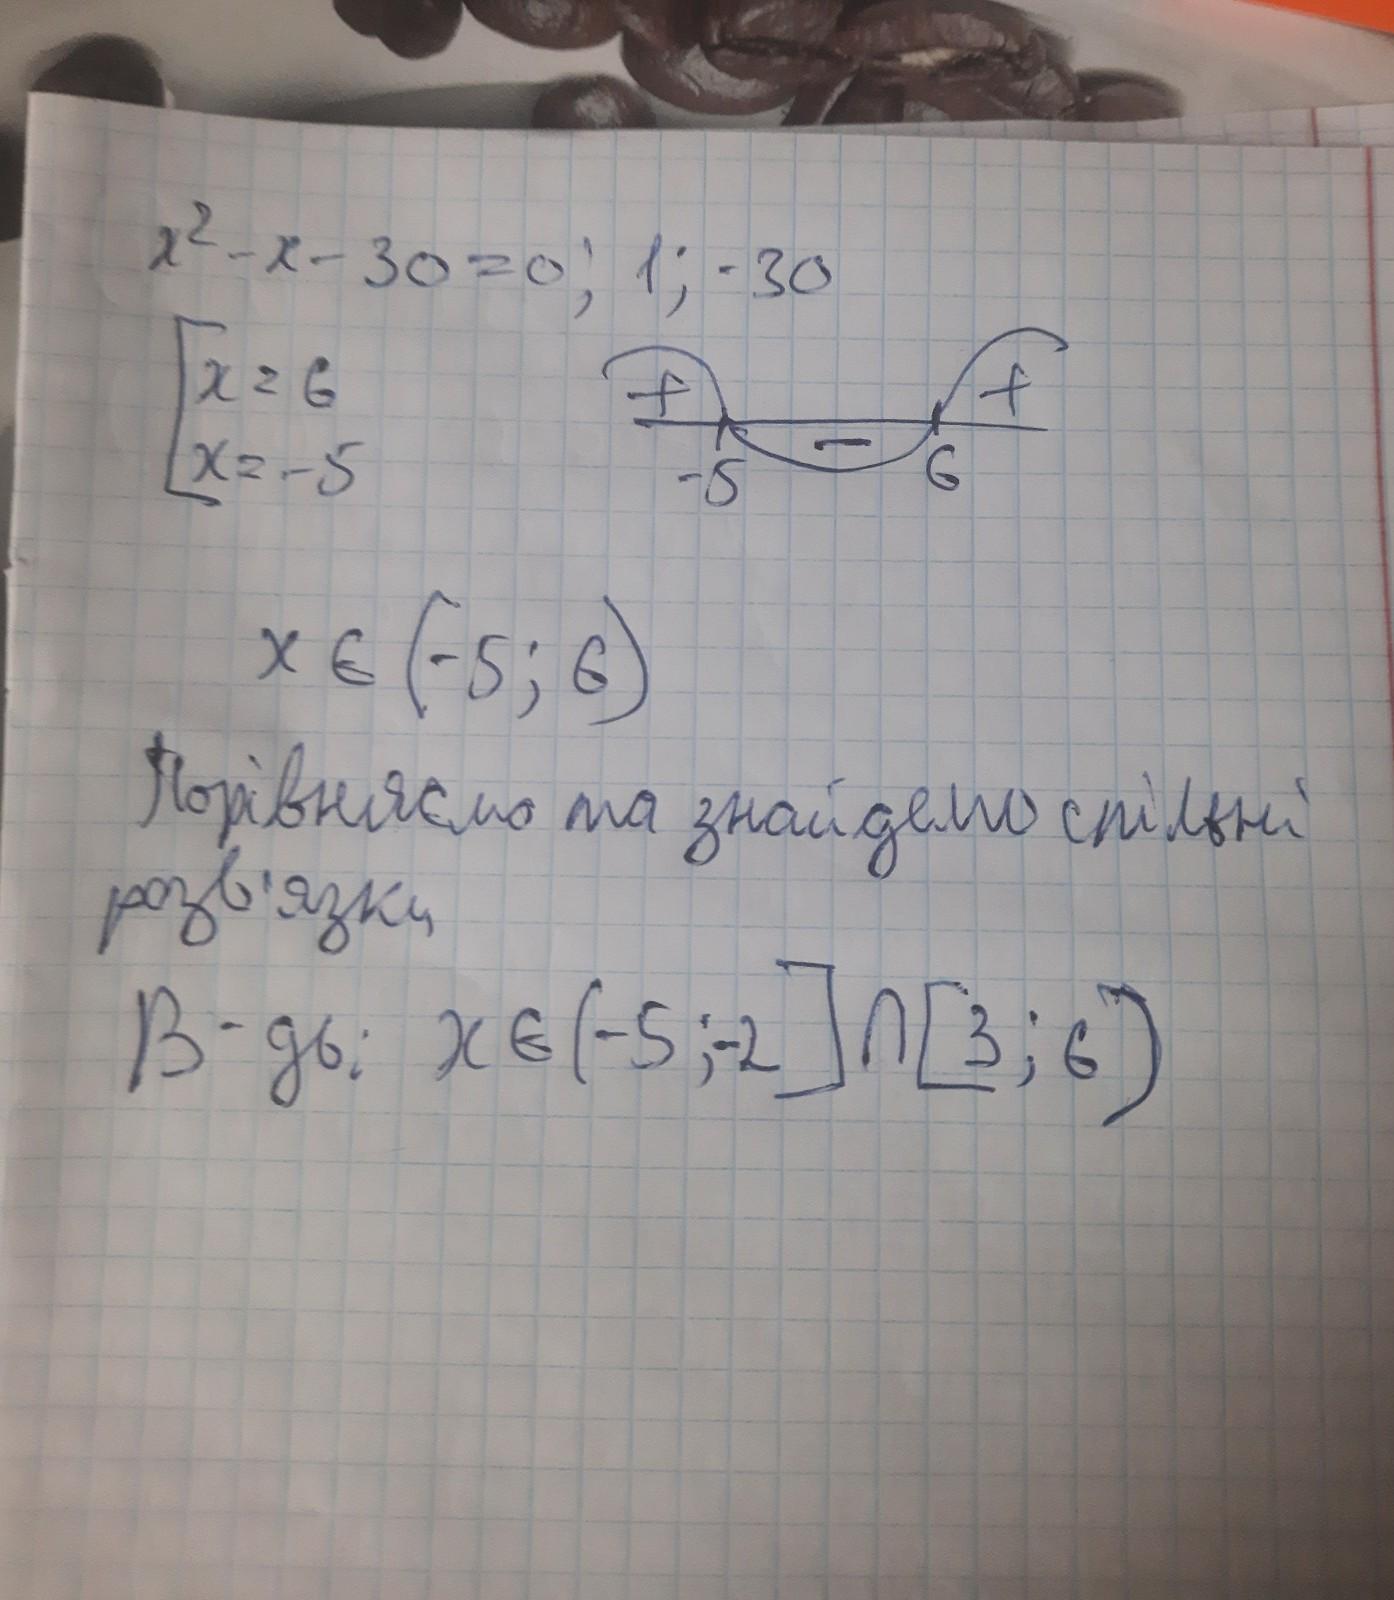 x² - x - 30 = 0; 1; -30
[x = 6
x = -5
+ - +
-5 6
x ∈ (-5; 6)
Порівняємо та знайдемо спільні
розв'язки
В-дь: x ∈ (-5; -2] ∩ [3; 6)